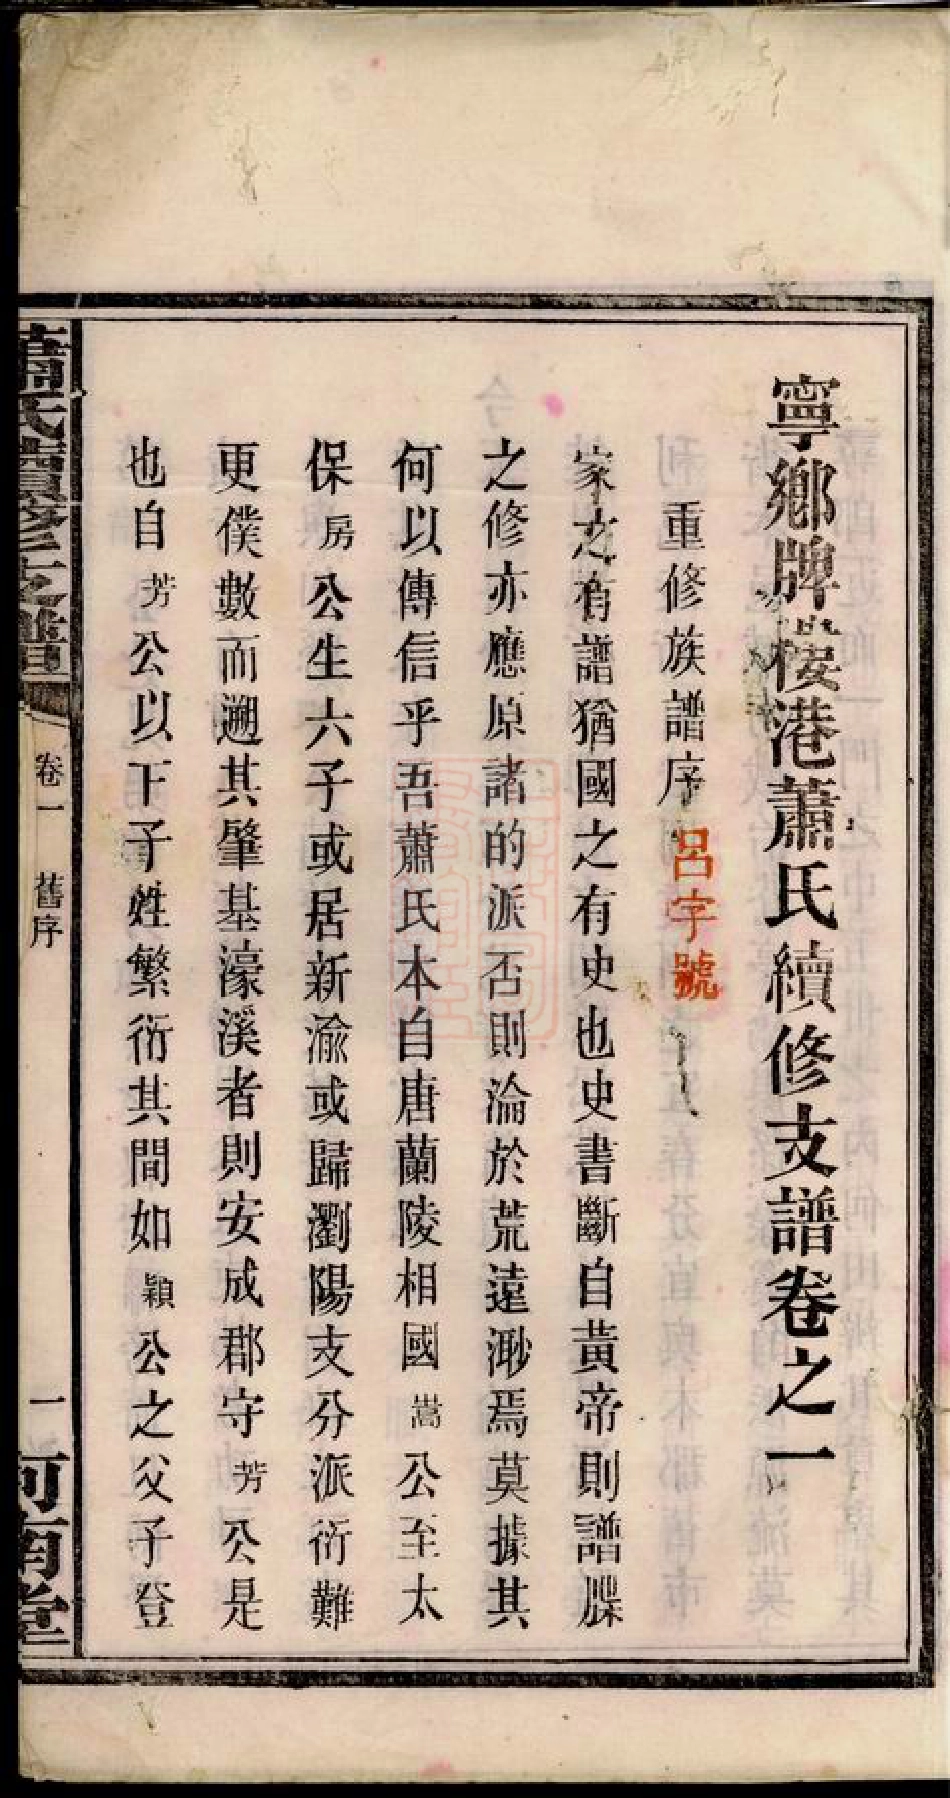 寧鄉牌樓港蕭氏續修支譜卷之一
重修族譜序 呂字號
家之有譜猶國之有史也史書斷自黃帝則譜牒
之修亦應原諸的派否則淪於荒遠渺焉莫據其
何以傳信乎吾蕭氏本自唐蘭陵相國嵩公至太
保房公生六子或居新渝或歸瀏陽支分派衍難
更僕數而遡其肇基濠溪者則安成郡守芳公是
也自芳公以下子姓繁衍其間如穎公之父子登
蕭氏續修支譜 卷一 舊序 一 河南堂